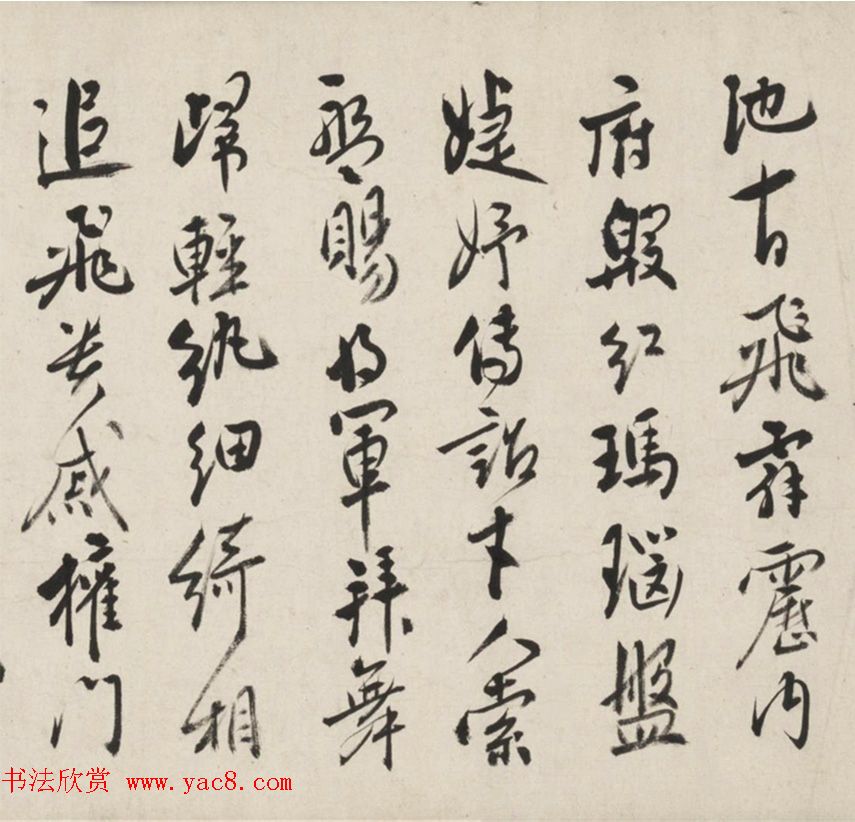 池十日飛霹靂内
府殷紅瑪瑙盤
婕妤傳詔才人索
盤賜將軍拜舞
歸輕紈細綺相
追飛貴戚權門
书法欣赏 www.yac8.com